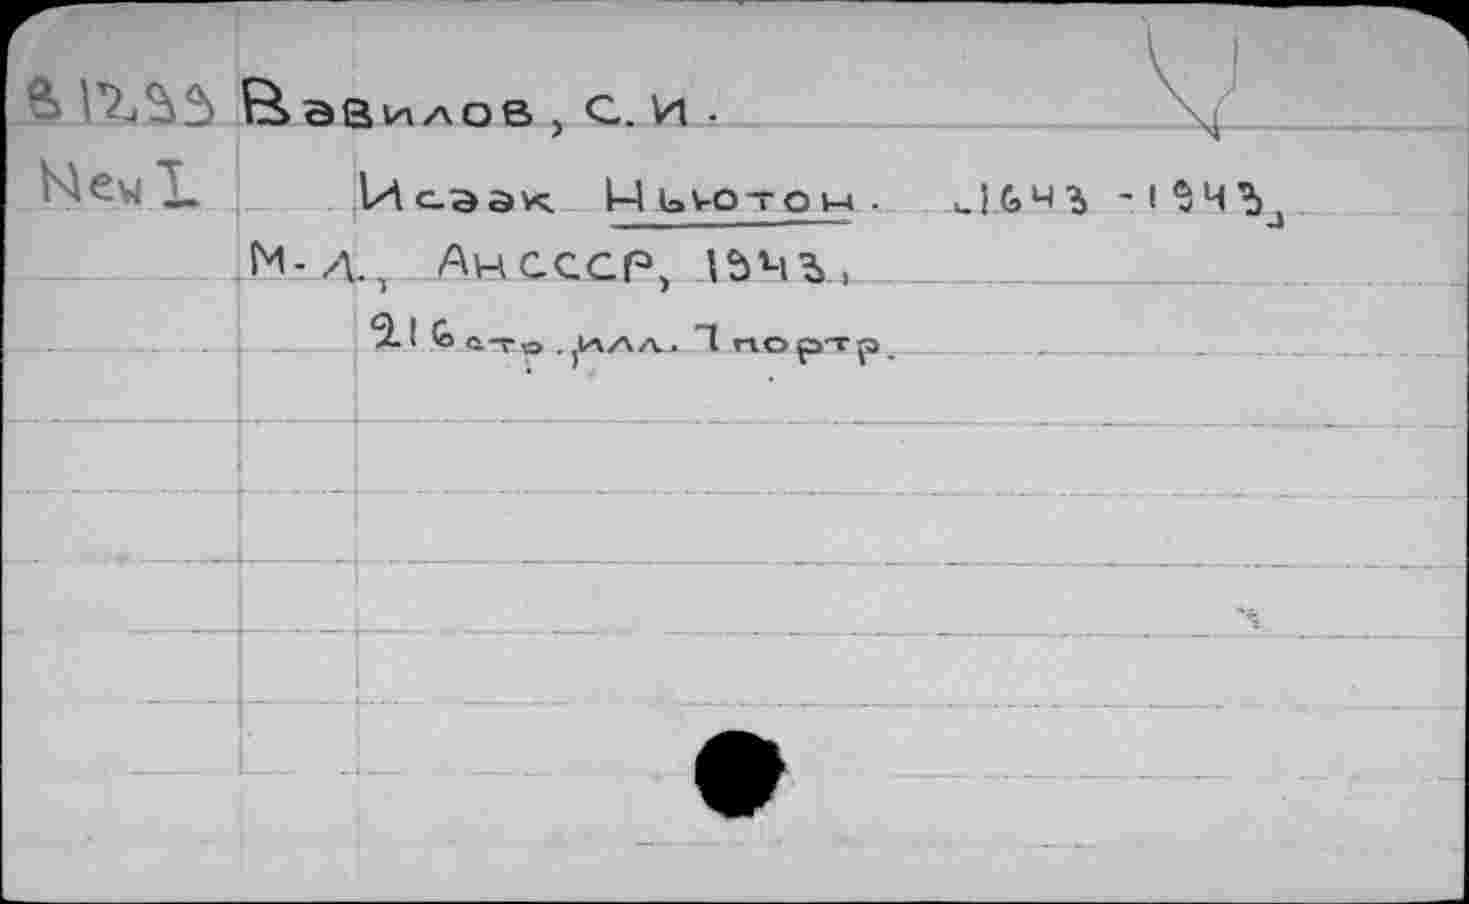 Вавилов, С. И.
New I
Исаак Ньютон. 1643-1943,
М-Л., АН СССР, 1943,
216 стр., илл. 1 портр.